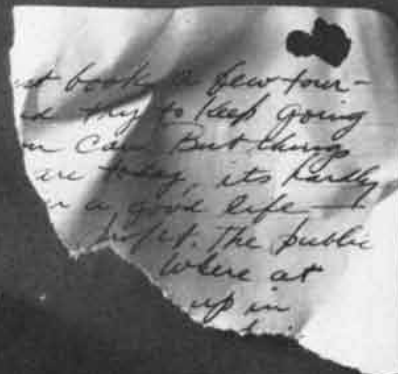 book a few tour-
try to keep going
can But things
are today, its hardly
a good life
profit. The public
where at
up in